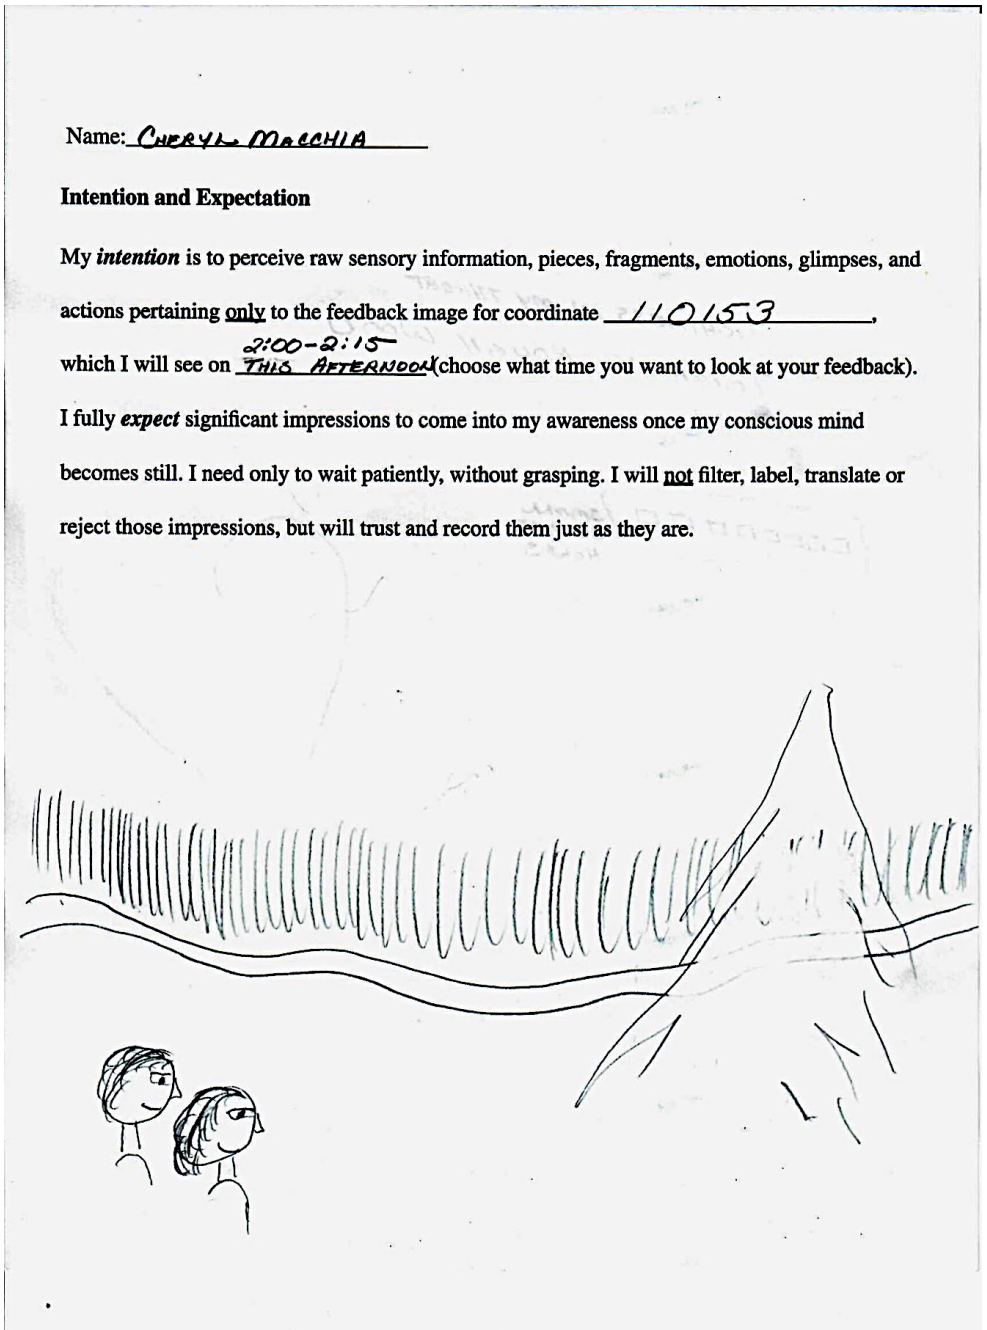 Name: CHERYL MACCHIA
Intention and Expectation
My intention is to perceive raw sensory information, pieces, fragments, emotions, glimpses, and
actions pertaining only to the feedback image for coordinate 110153,
2:00-2:15
which I will see on THIS AFTERNOON (choose what time you want to look at your feedback).
I fully expect significant impressions to come into my awareness once my conscious mind
becomes still. I need only to wait patiently, without grasping. I will not filter, label, translate or
reject those impressions, but will trust and record them just as they are.